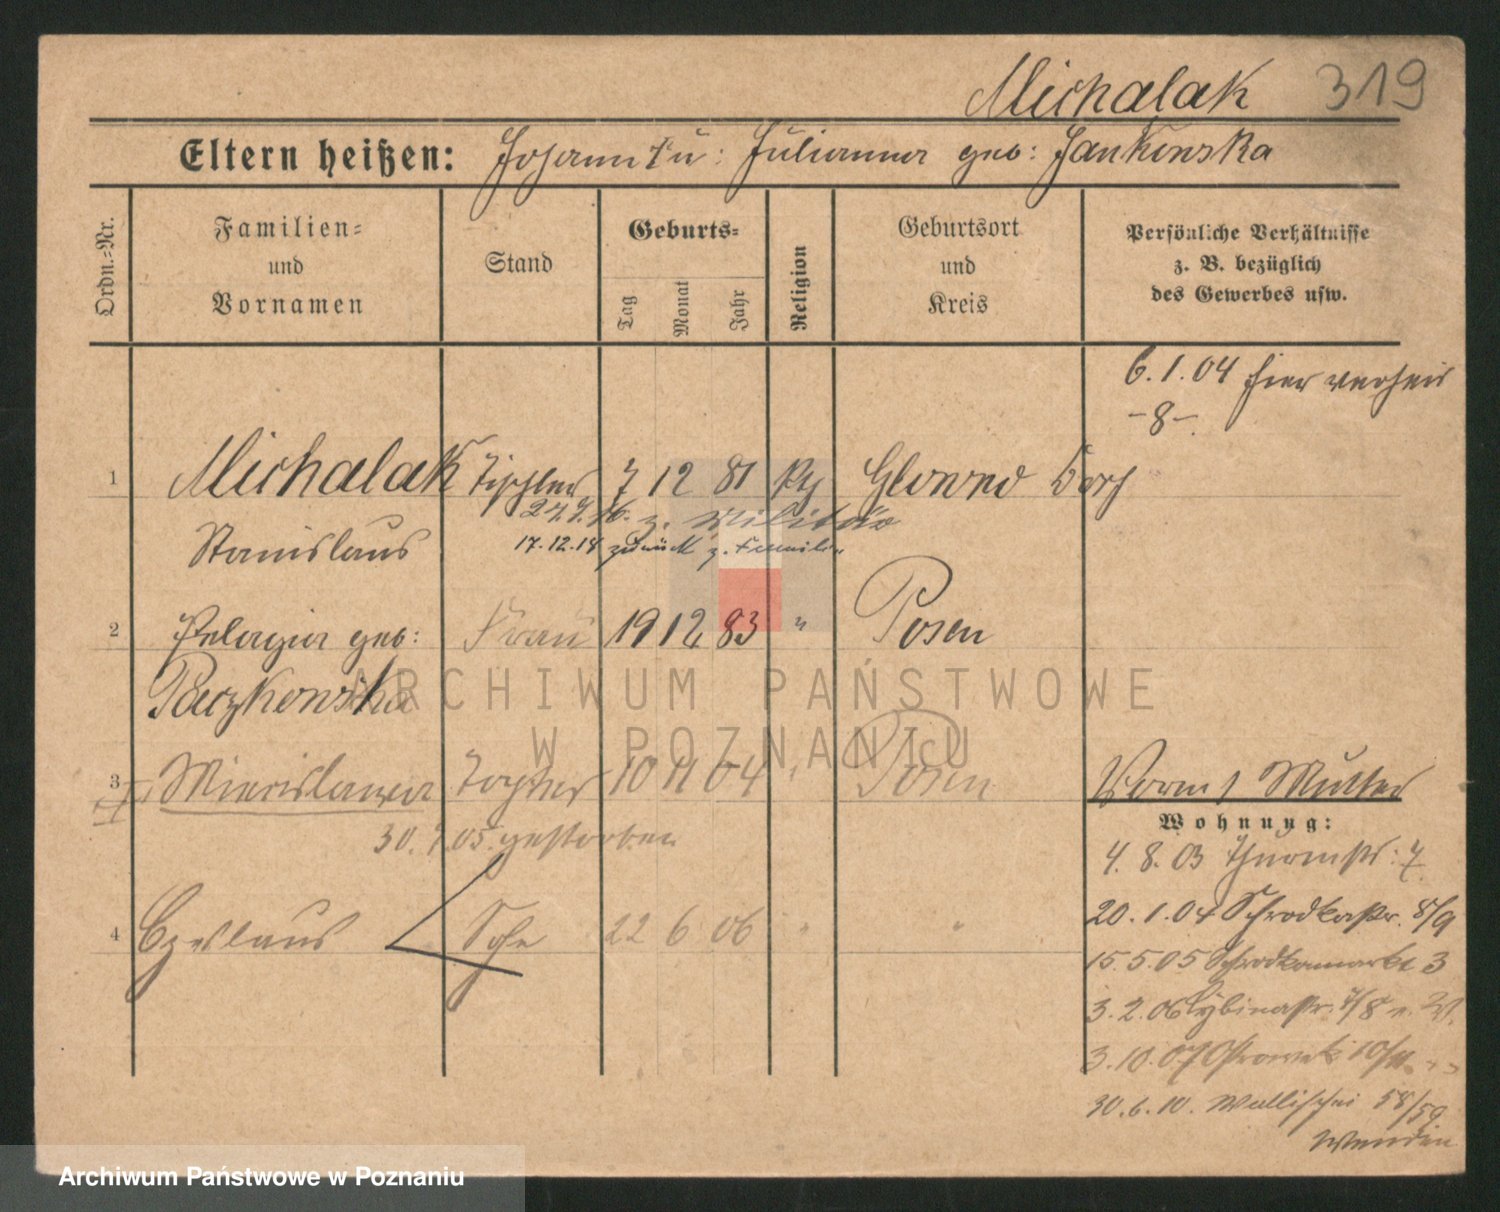 Michalak 319
Eltern heißen: Johann † u: Julianna geb: Jankowska
Ordn.=Nr.
Familien=
und
Vornamen
Stand
Geburts=
Tag
Monat
Jahr
Religion
Geburtsort
und
Kreis
Persönliche Verhältnisse
z. B. bezüglich
des Gewerbes usw.
6.1.04 hier verheir
-8-
1 Michalak Tischler 7 12 81 Kth Glowno Dorf
27.9.16. z. Militär
Stanislaus 17.12.18 zurück z. Familie
2 Pelagia geb: Frau 19 12 83 " Posen
Paczkowska
ARCHIWUM PAŃSTWOWE
W POZNANIU
3 Miecislawa Tochter 10 11 04 " Posen
30.7.05. gestorben
4 Czeslaus Sohn 22 6 06 " "
Vorm. Mutter
Wohnung:
4.8.03 Thurmstr: 7
20.1.04 Schrodkastr. 8/9
15.5.05 Schrodkamarkt 3
3.2.06 Cybinastr. 7/8
3.10.07 Ostrowek 10/11
30.6.10. Wallischei 58/59
Archiwum Państwowe w Poznaniu